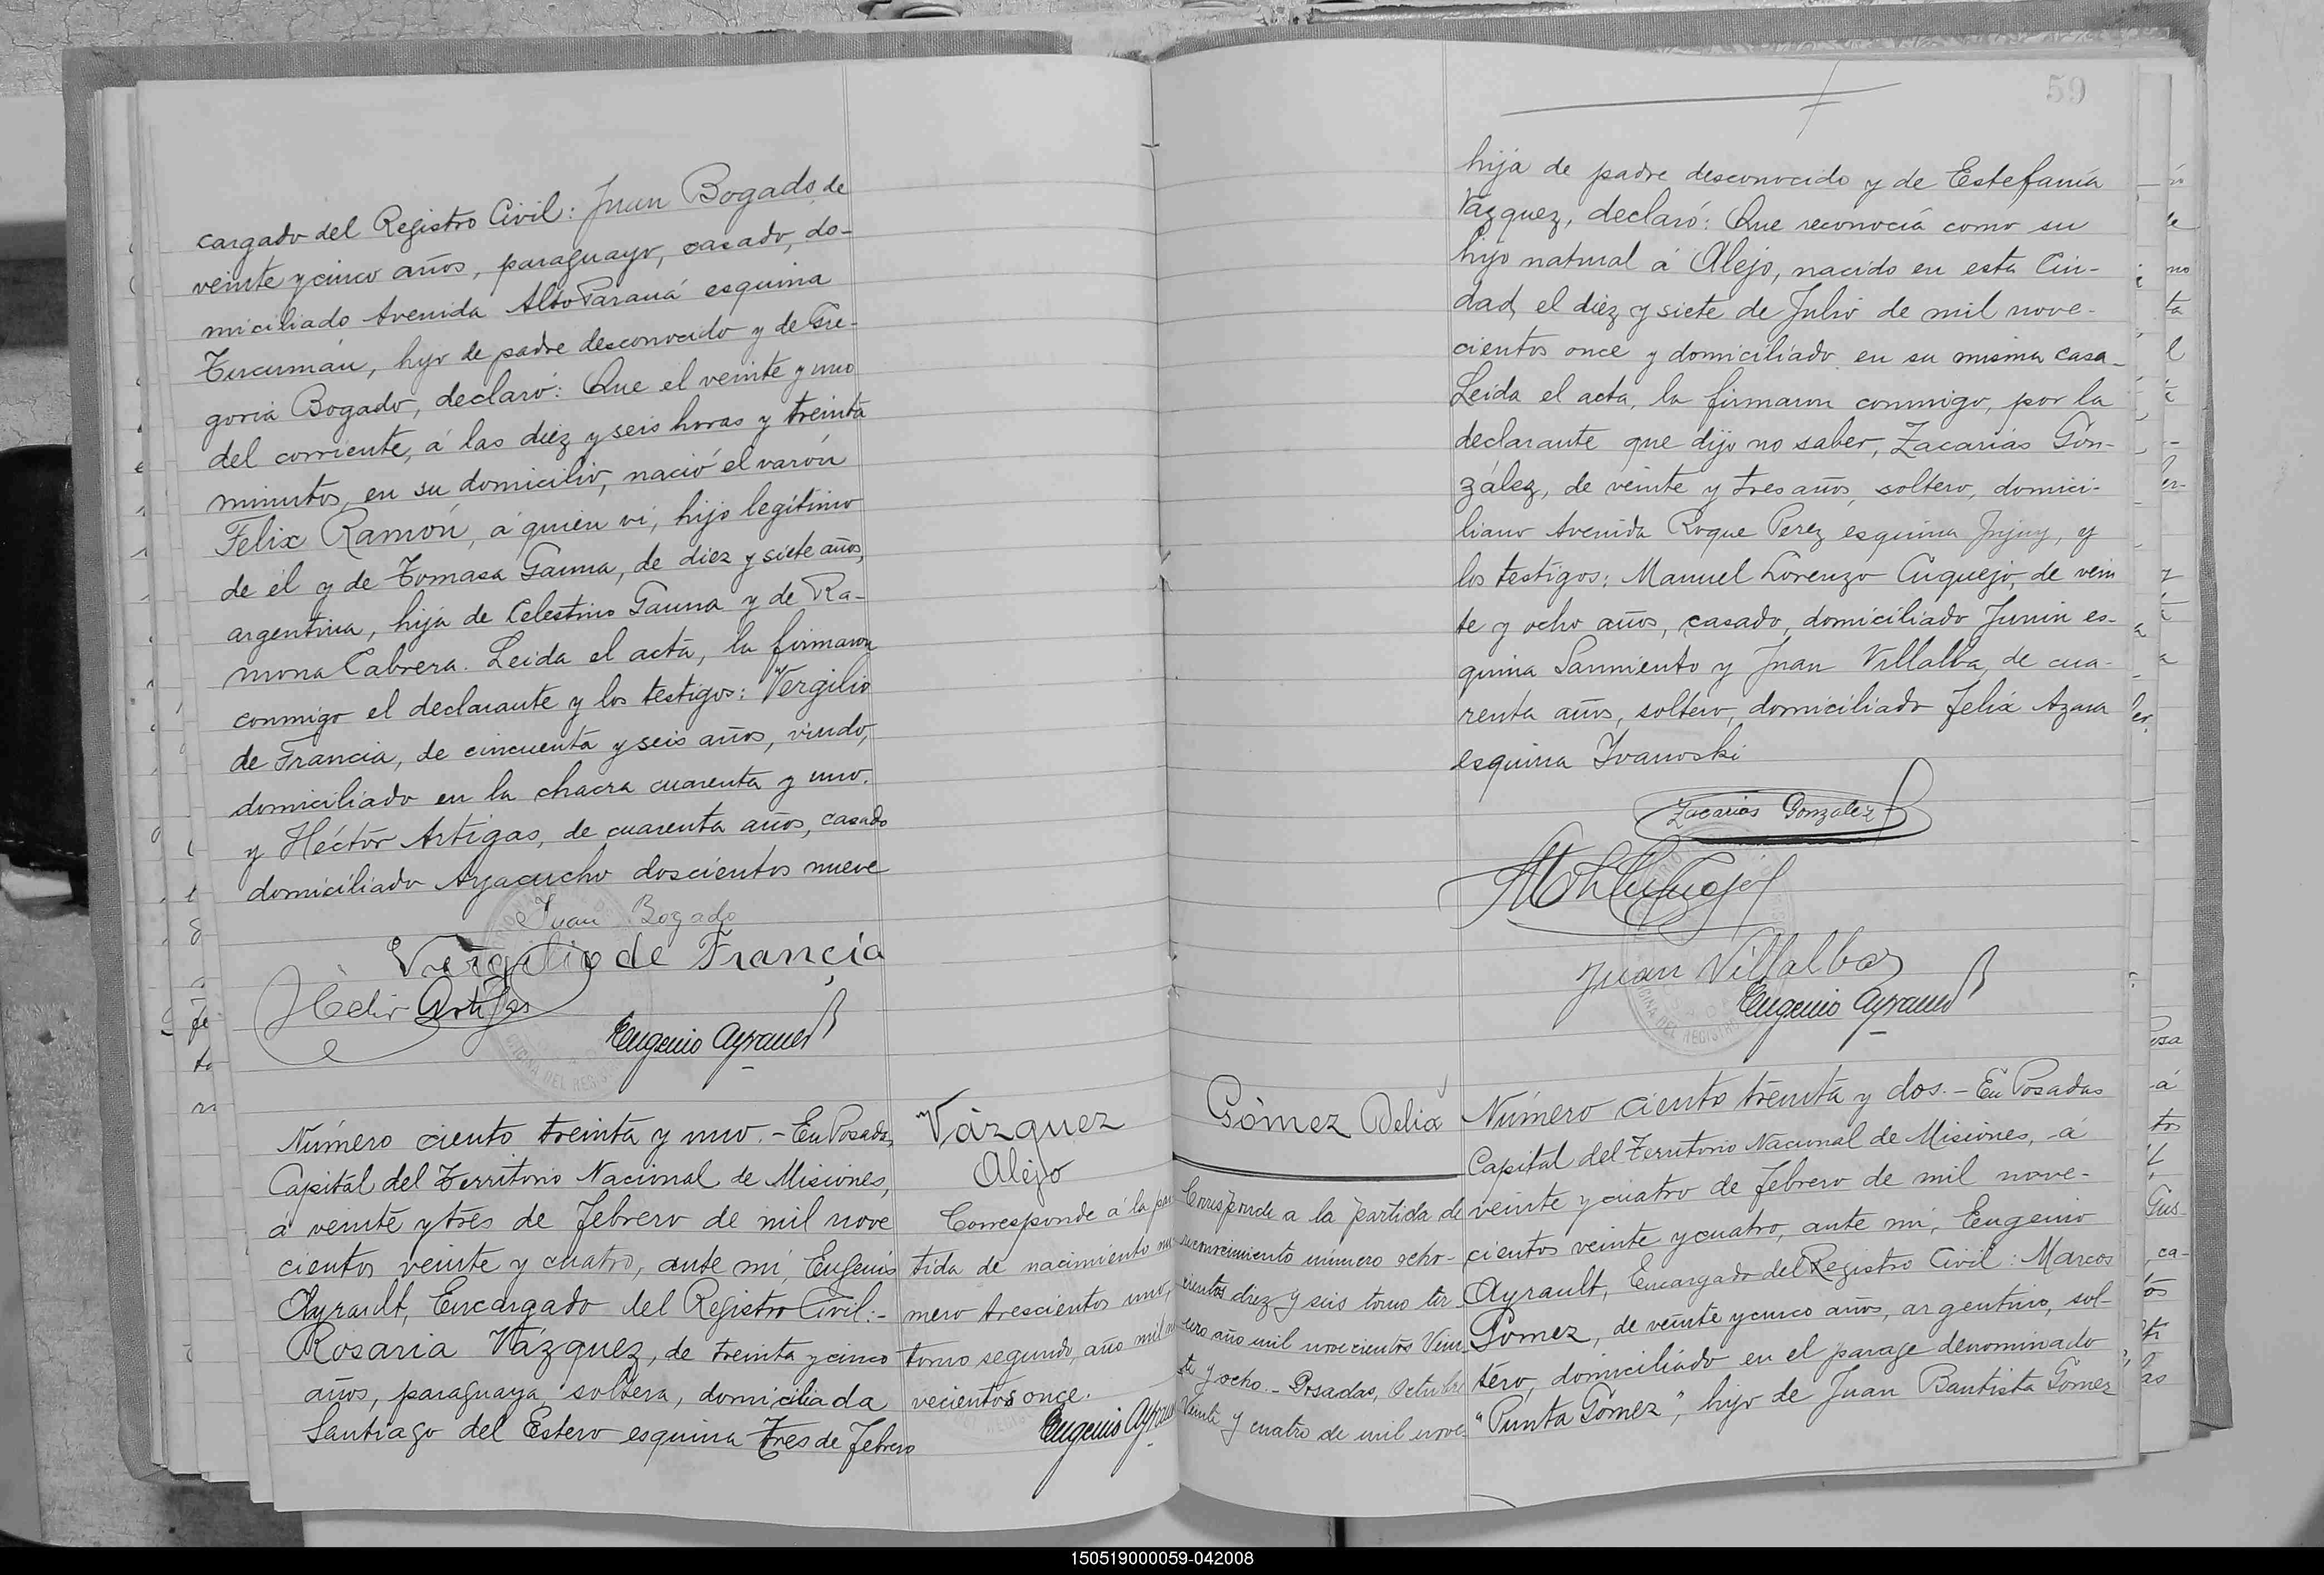 cargado del Registro Civil: Juan Bogado, de
veinte y cinco años, paraguayo, casado, do-
miciliado Avenida Alto Paraná esquina
Tucumán, hijo de padre desconocido y de Gre-
goria Bogado, declaró: Que el veinte y uno
del corriente, á las diez y seis horas y treinta
minutos, en su domicilio, nació el varón
Felix Ramón, á quien ví, hijo legítimo
de él y de Tomasa Gauna, de diez y siete años,
argentina, hija de Celestino Gauna y de Ra-
mona Cabrera. Leida el acta, la firmaron
conmigo el declarante y los testigos: Vergilio
de Francia, de cincuenta y seis años, viudo,
domiciliado en la chacra cuarenta y uno.
y Héctor Artigas, de cuarenta años, casado
domiciliado Ayacucho doscientos nueve
Juan Bogado
Vergilio de Francia
Héctor Artigas
Eugenio Ayrault
Número ciento treinta y uno.- En Posadas,
Capital del Territorio Nacional de Misiones,
á veinte y tres de Febrero de mil nove
cientos veinte y cuatro, ante mí, Eugenio
Ayrault, Encargado del Registro Civil:-
Rosaria Vázquez, de treinta y cinco
años, paraguaya, soltera, domiciliada
Santiago del Estero esquina Tres de Febrero
Vázquez
Alejo
Corresponde á la par
tida de nacimiento nú
mero trescientos uno,
tomo segundo, año mil no
vecientos once.
Eugenio Ayrault
59
hija de padre desconocido y de Estefanía
Vázquez, declaró: Que reconocía como su
hijo natural á Alejo, nacido en esta Ciu-
dad, el diez y siete de Julio de mil nove-
cientos once y domiciliado en su misma casa-
Leida el acta, la firmaron conmigo, por la
declarante que dijo no saber, Zacarías Gon-
zález, de veinte y tres años, soltero, domici-
liano Avenida Roque Perez esquina Jujuy, y
los testigos: Manuel Lorenzo Cuquejo, de vein
te y ocho años, casado, domiciliado Junin es-
quina Sarmiento y Juan Villalba, de cua-
renta años, soltero, domiciliado Felix Azara
esquina Ivanoski
Zacarías Gonzalez
Juan Villalba
Eugenio Ayrault
Gómez Delia
Corresponde a la partida de
reconocimiento número ocho-
cientos diez y seis tomo ter-
cero año mil novecientos Vein-
te y ocho.- Posadas, Octubre
Veinte y cuatro de mil nove-
Número ciento treinta y dos.- En Posadas
Capital del Territorio Nacional de Misiones, á
veinte y cuatro de Febrero de mil nove-
cientos veinte y cuatro, ante mí, Eugenio
Ayrault, Encargado del Registro Civil: Marcos
Gomez, de veinte y cinco años, argentino, sol-
tero, domiciliado en el parage denominado
"Punta Gómez", hijo de Juan Bautista Gomez
150519000059-042008